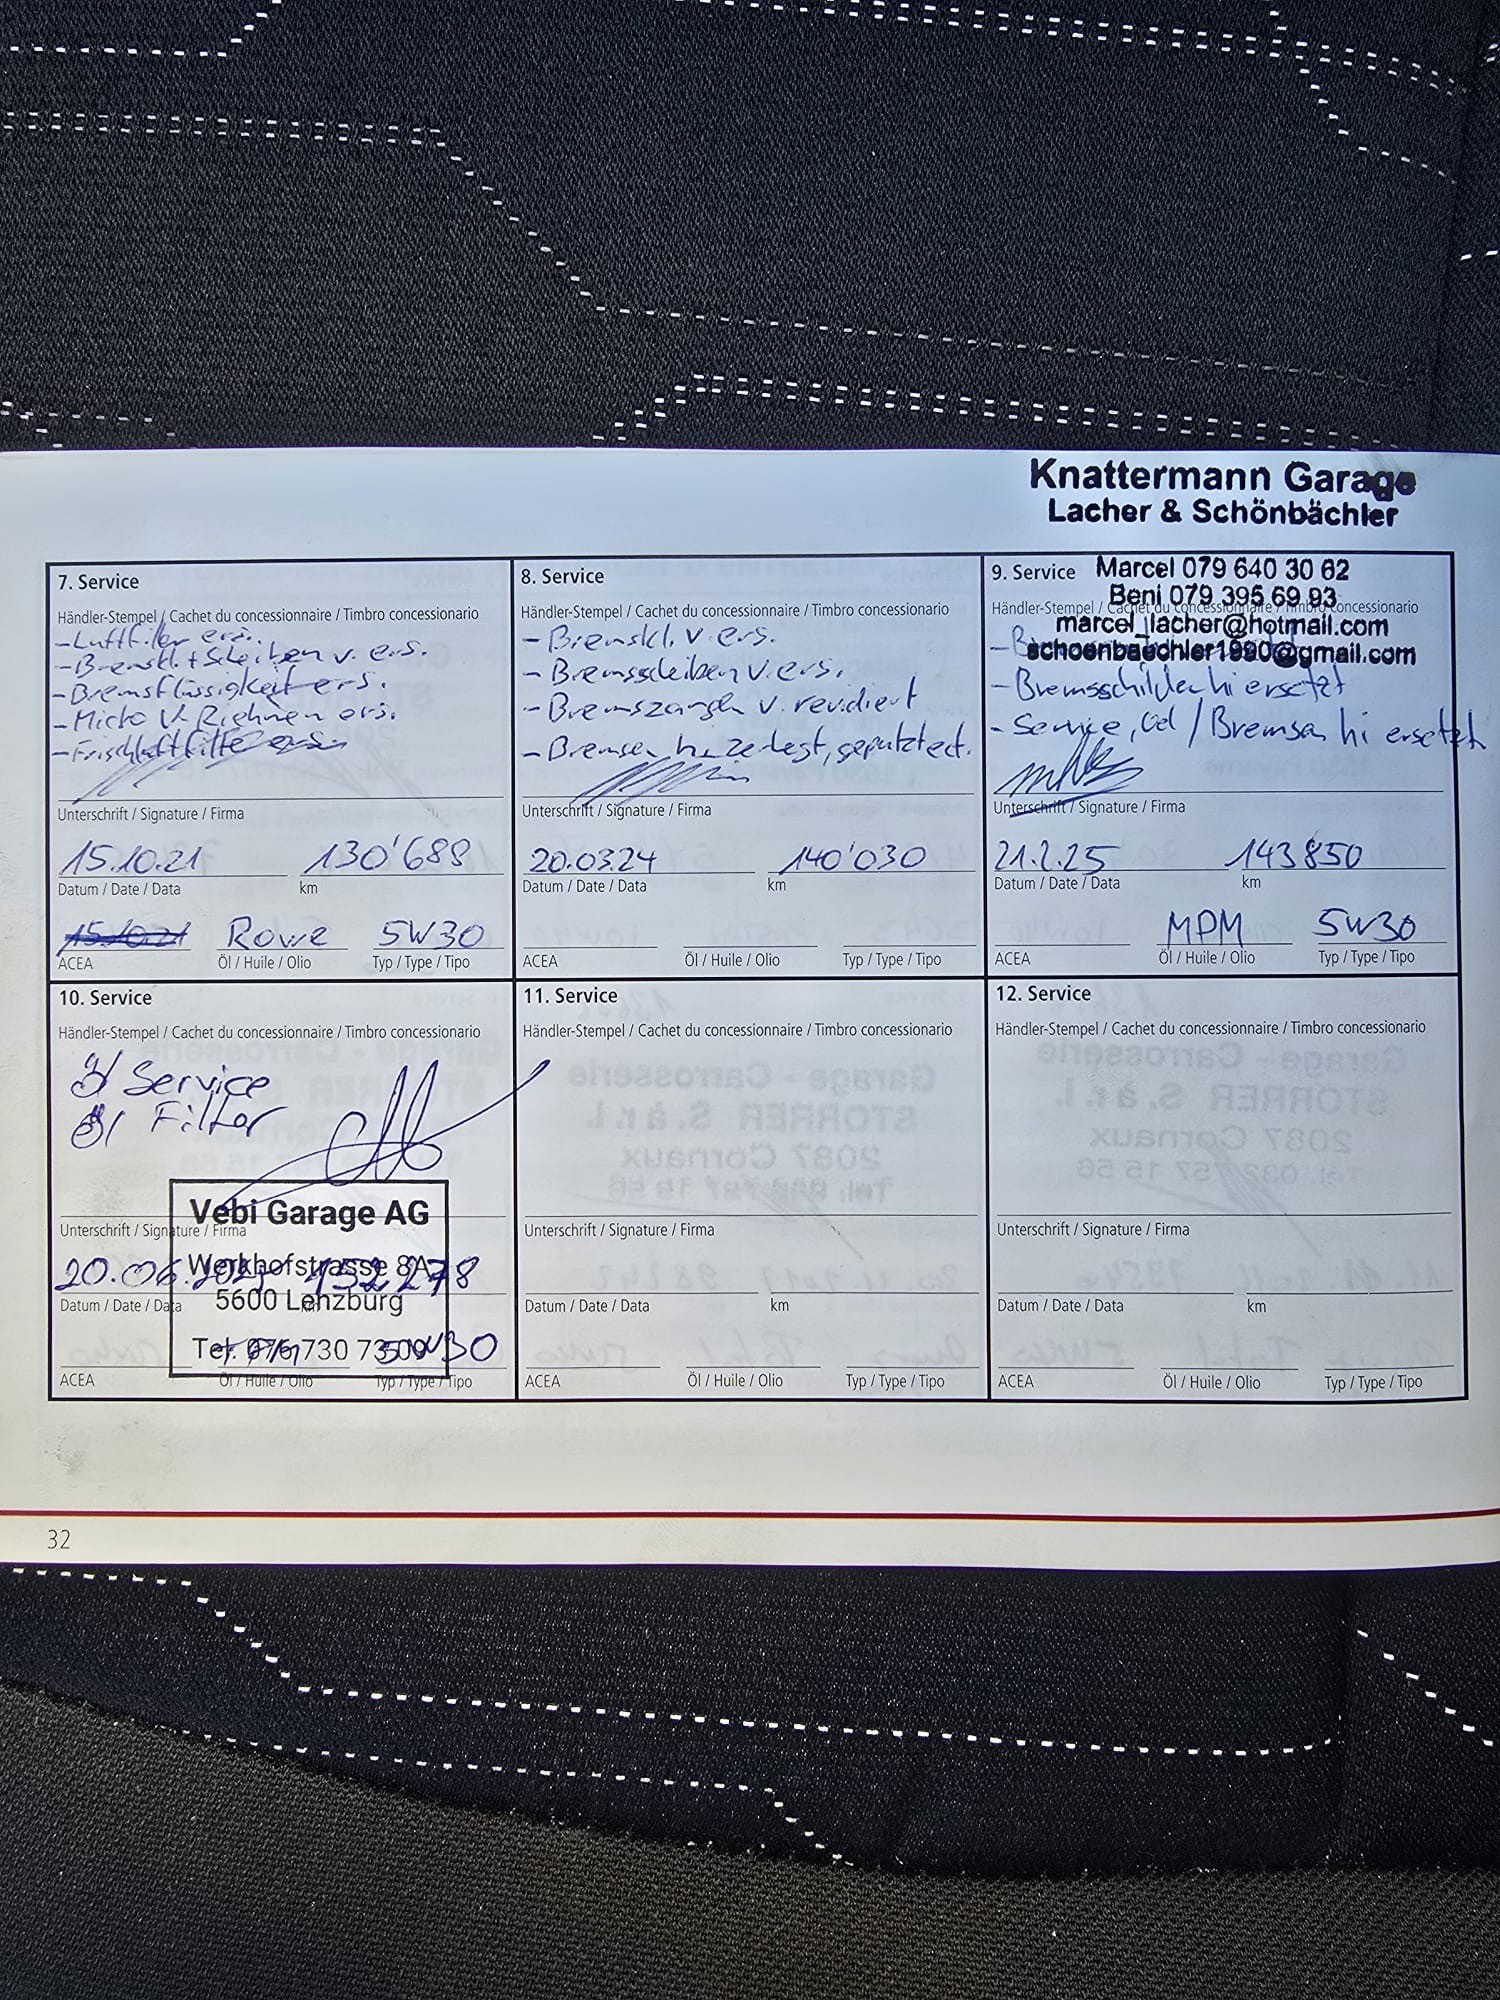 Knattermann Garage
Lacher & Schönbächler
7. Service
Händler-Stempel / Cachet du concessionnaire / Timbro concessionario
- Luftfilter ers.
- Bremskl. + Scheiben v. ers.
- Bremsflüssigkeit ers.
- Micro V. Riehmen ers.
- Frischluftfilter ers.
Unterschrift / Signature / Firma
15.10.21 130'688
Datum / Date / Data km
15.10.21 Rowe 5W30
ACEA Öl / Huile / Olio Typ / Type / Tipo
8. Service
Händler-Stempel / Cachet du concessionnaire / Timbro concessionario
- Bremskl. v. ers.
- Bremsscheiben v. ers.
- Bremszangen v. revidiert
- Bremsen h. zerlegt, geputzt
Unterschrift / Signature / Firma
20.03.24 140'030
Datum / Date / Data km
ACEA Öl / Huile / Olio Typ / Type / Tipo
9. Service Marcel 079 640 30 62
Beni 079 395 69 93
Händler-Stempel / Cachet du concessionnaire / Timbro concessionario
marcel_lacher@hotmail.com
schoenbaechler1990@gmail.com
- Bremsschilder hi ersetzt
- Service, Oel / Bremsen hi ersetzt
Unterschrift / Signature / Firma
21.2.25 143850
Datum / Date / Data km
MPM 5W30
ACEA Öl / Huile / Olio Typ / Type / Tipo
10. Service
Händler-Stempel / Cachet du concessionnaire / Timbro concessionario
Öl Service
Öl Filter
Vebi Garage AG
Unterschrift / Signature / Firma
Werkhofstrasse 8A
20.06.2025 152278
5600 Lenzburg
Datum / Date / Data
Tel. 076 730 73 09
5W30
ACEA Öl / Huile / Olio Typ / Type / Tipo
11. Service
Händler-Stempel / Cachet du concessionnaire / Timbro concessionario
Unterschrift / Signature / Firma
Datum / Date / Data km
ACEA Öl / Huile / Olio Typ / Type / Tipo
12. Service
Händler-Stempel / Cachet du concessionnaire / Timbro concessionario
Unterschrift / Signature / Firma
Datum / Date / Data km
ACEA Öl / Huile / Olio Typ / Type / Tipo
32